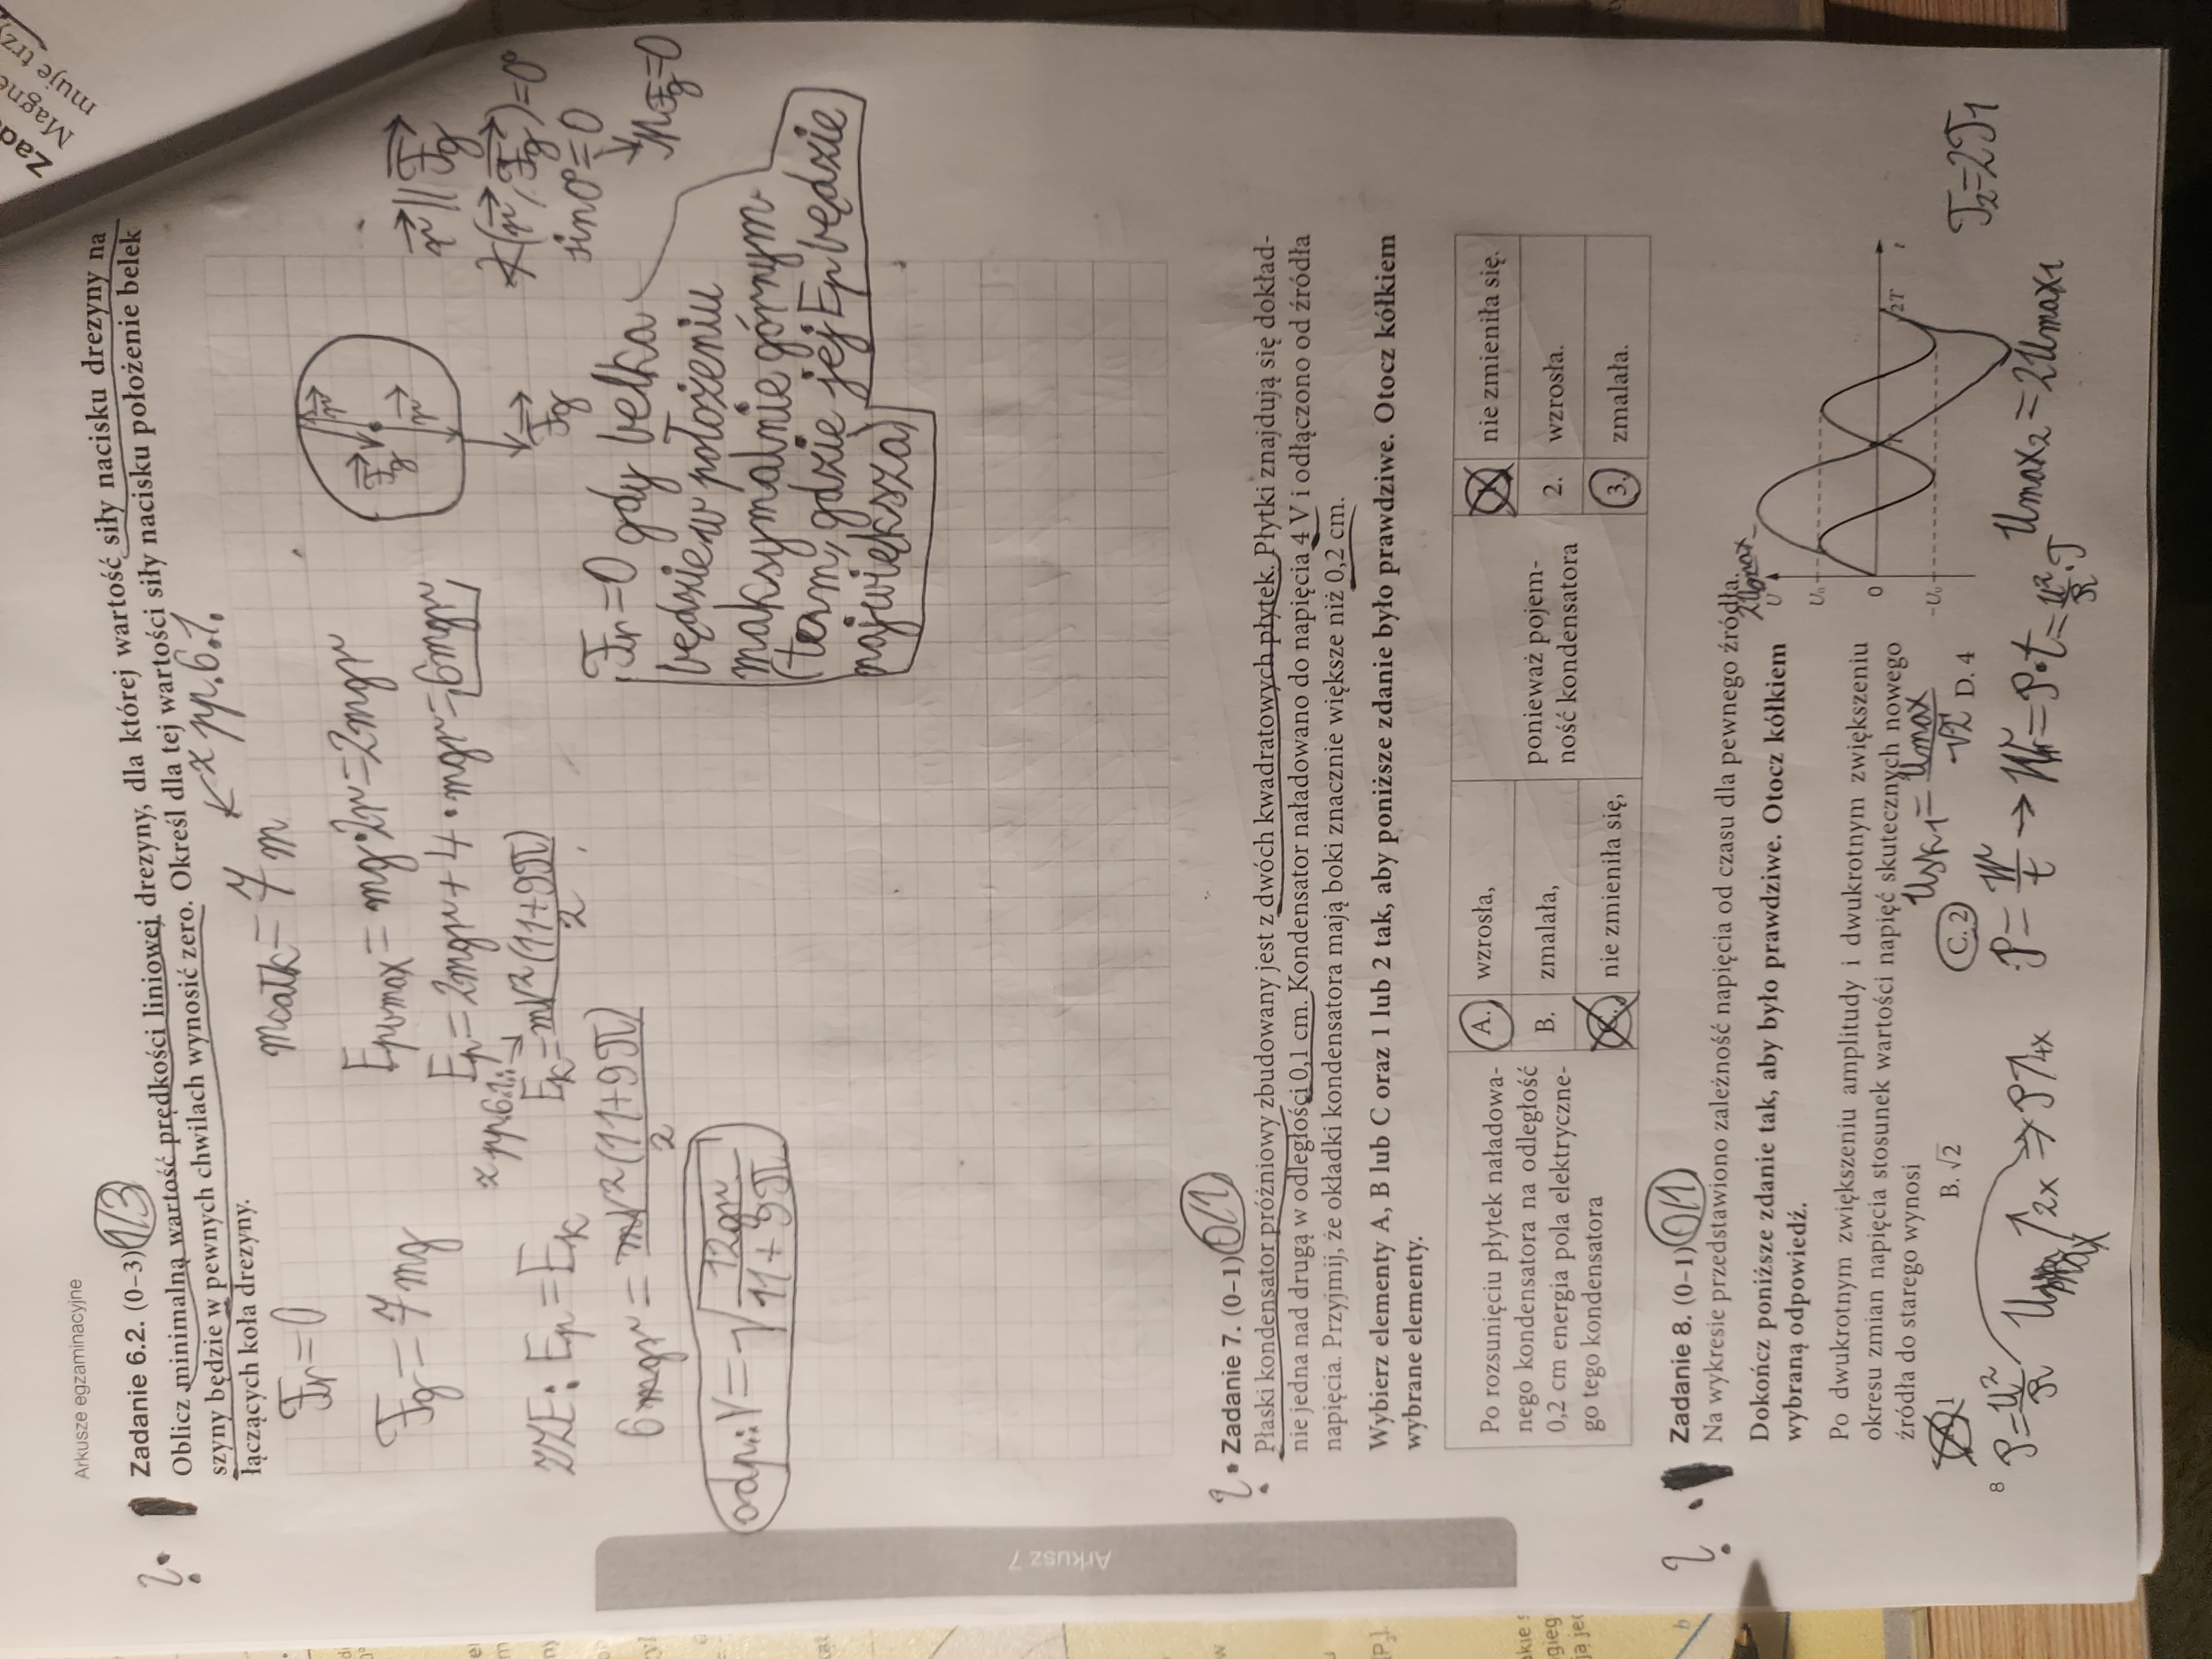 Arkusze egzaminacyjne
Zadanie 6.2. (0–3) 1/3
Oblicz minimalną wartość prędkości liniowej drezyny, dla której wartość siły nacisku drezyny na
szyny będzie w pewnych chwilach wynosić zero. Określ dla tej wartości siły nacisku położenie belek
łączących koła drezyny.
z pp. 6.1.
Fr=0
mcałk=7m
Fg=7mg
Epwmax=mg·2r=2mgr
Ep=2mgr+4·mgr=6mgr
z pp 6.1.:
Ek=mv²(11+9π)
2
ZZE: Ep=Ek
6mgr=mv²(11+9π)
2
odp.: V=√12gr
11+9π
r
Fg
r
Fg
r||Fg
∢(r,Fg)=0°
sin0°=0
MFg=0
Fr=0 gdy belka
będzie w położeniu
maksymalnie górnym
(tam, gdzie jej Ep będzie
największa)
Arkusz 7
Zadanie 7. (0–1) 0/1
Płaski kondensator próżniowy zbudowany jest z dwóch kwadratowych płytek. Płytki znajdują się dokład-
nie jedna nad drugą w odległości 0,1 cm. Kondensator naładowano do napięcia 4 V i odłączono od źródła
napięcia. Przyjmij, że okładki kondensatora mają boki znacznie większe niż 0,2 cm.
Wybierz elementy A, B lub C oraz 1 lub 2 tak, aby poniższe zdanie było prawdziwe. Otocz kółkiem
wybrane elementy.
Po rozsunięciu płytek naładowa-
nego kondensatora na odległość
0,2 cm energia pola elektryczne-
go tego kondensatora
A. wzrosła,
B. zmalała,
C. nie zmieniła się,
ponieważ pojem-
ność kondensatora
1. nie zmieniła się.
2. wzrosła.
3. zmalała.
Zadanie 8. (0–1) 0/1
Na wykresie przedstawiono zależność napięcia od czasu dla pewnego źródła.
Dokończ poniższe zdanie tak, aby było prawdziwe. Otocz kółkiem
wybraną odpowiedź.
Po dwukrotnym zwiększeniu amplitudy i dwukrotnym zwiększeniu
okresu zmian napięcia stosunek wartości napięć skutecznych nowego
źródła do starego wynosi
A. 1 B. √2 C. 2 D. 4
Usk1=Umax
√2
2Umax
U
U₀
0
-U₀
T
2T
t
P=U²
R
2x ⇒ P↑4x
P=W
t
→ W=P·t=U²
R
·T
Umax2=2Umax1
T2=2T1
8
Zad
Magne
muje trzy